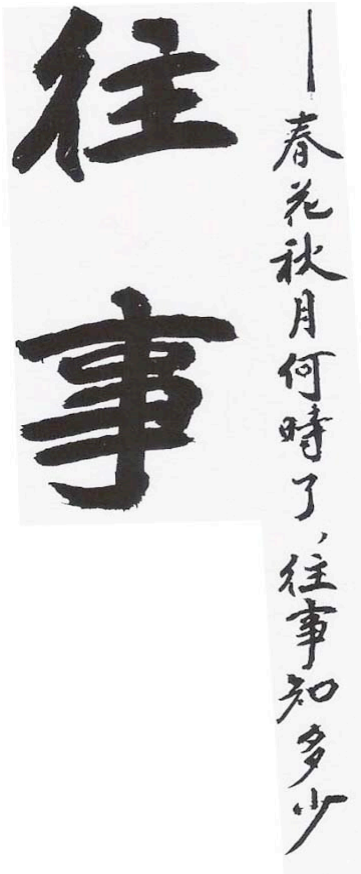 往事
—春花秋月何時了，往事知多少